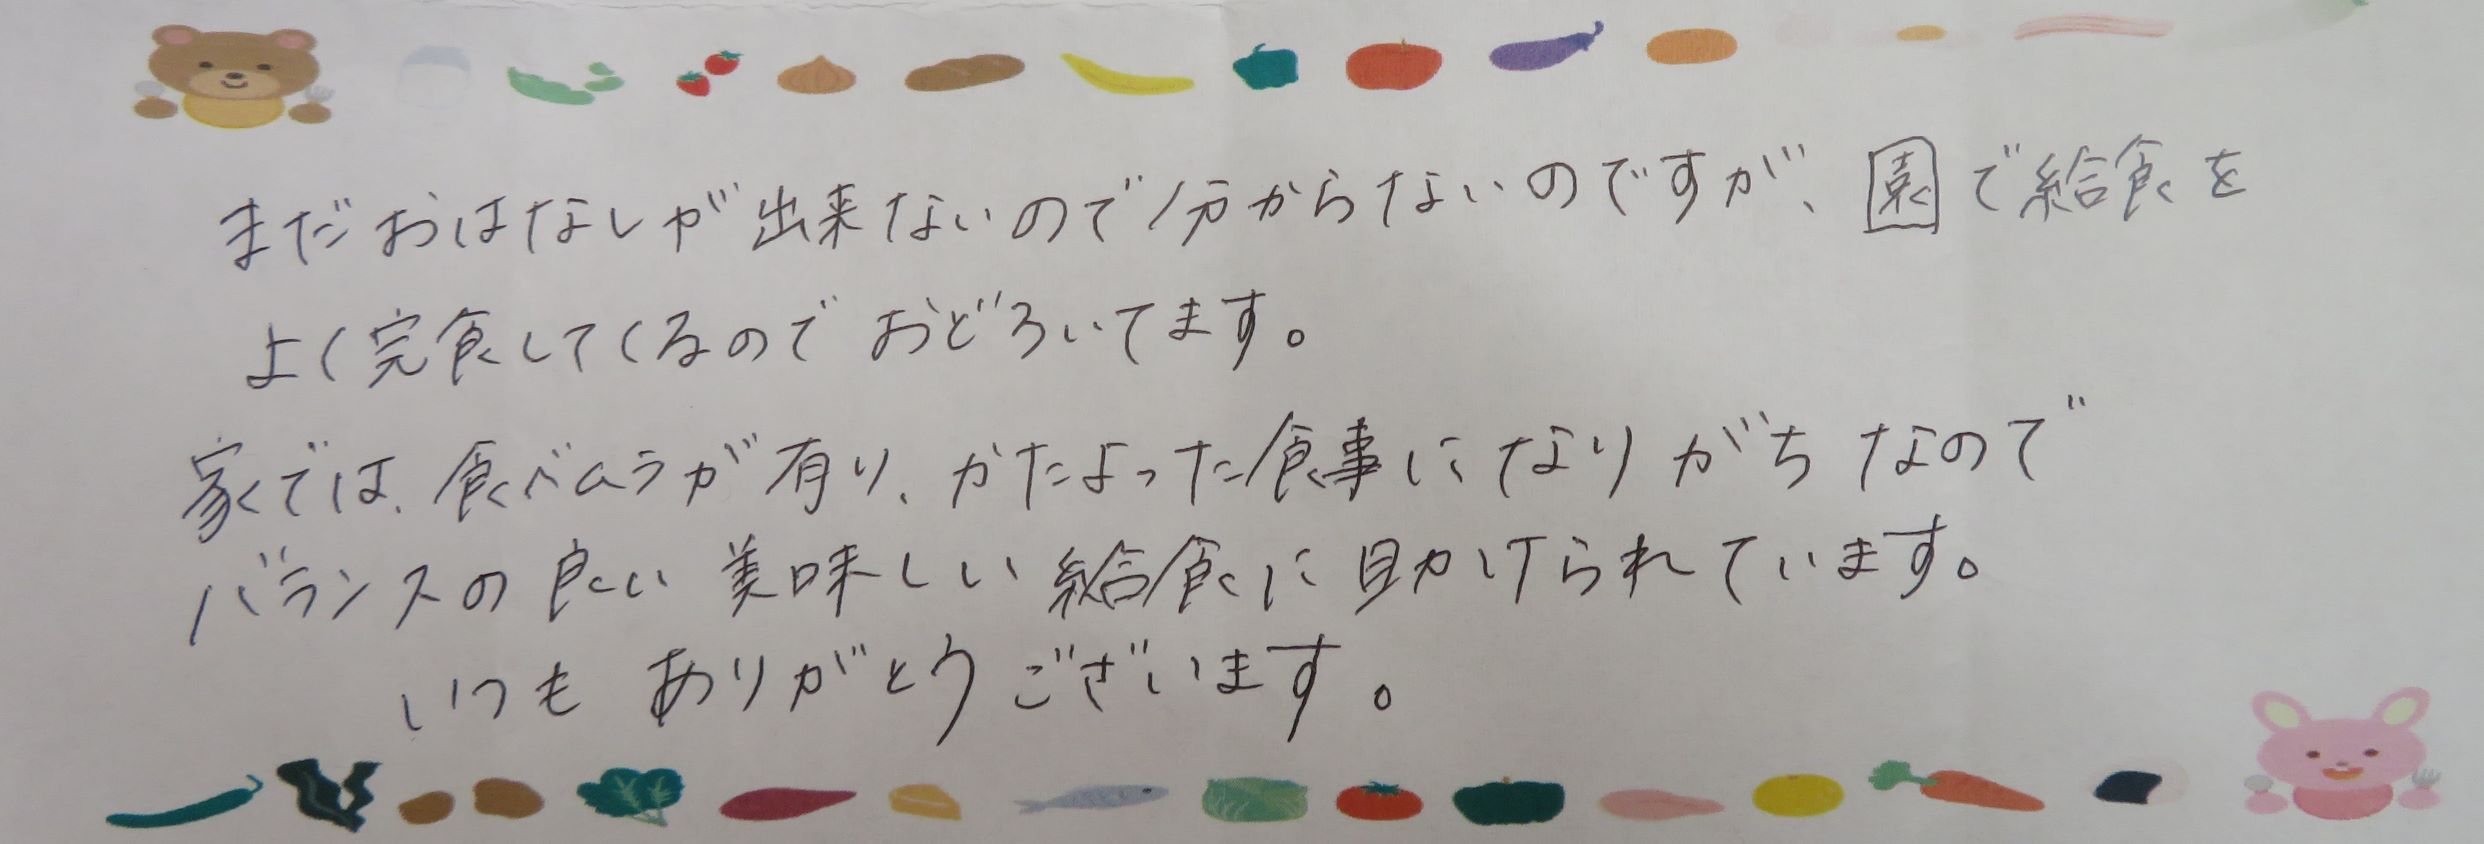 まだおはなしが出来ないので分からないのですが、園で給食を
よく完食してくるのでおどろいてます。
家では、食べムラが有り、かたよった食事になりがちなので
バランスの良い美味しい給食に助けられています。
いつもありがとうございます。